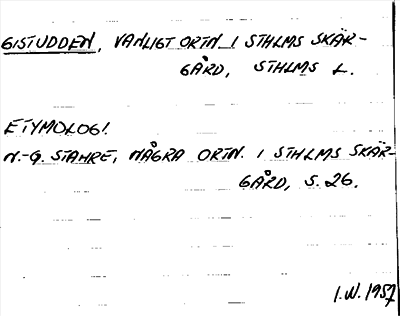 GISTUDDEN, VANLIGT ORTN. I STHLMS SKÄR-
GÅRD, STHLMS L.
ETYMOLOGI.
N.-G. STAHRE, NÅGRA ORTN. I STHLMS SKÄR-
GÅRD, S. 26.
I.W. 1957